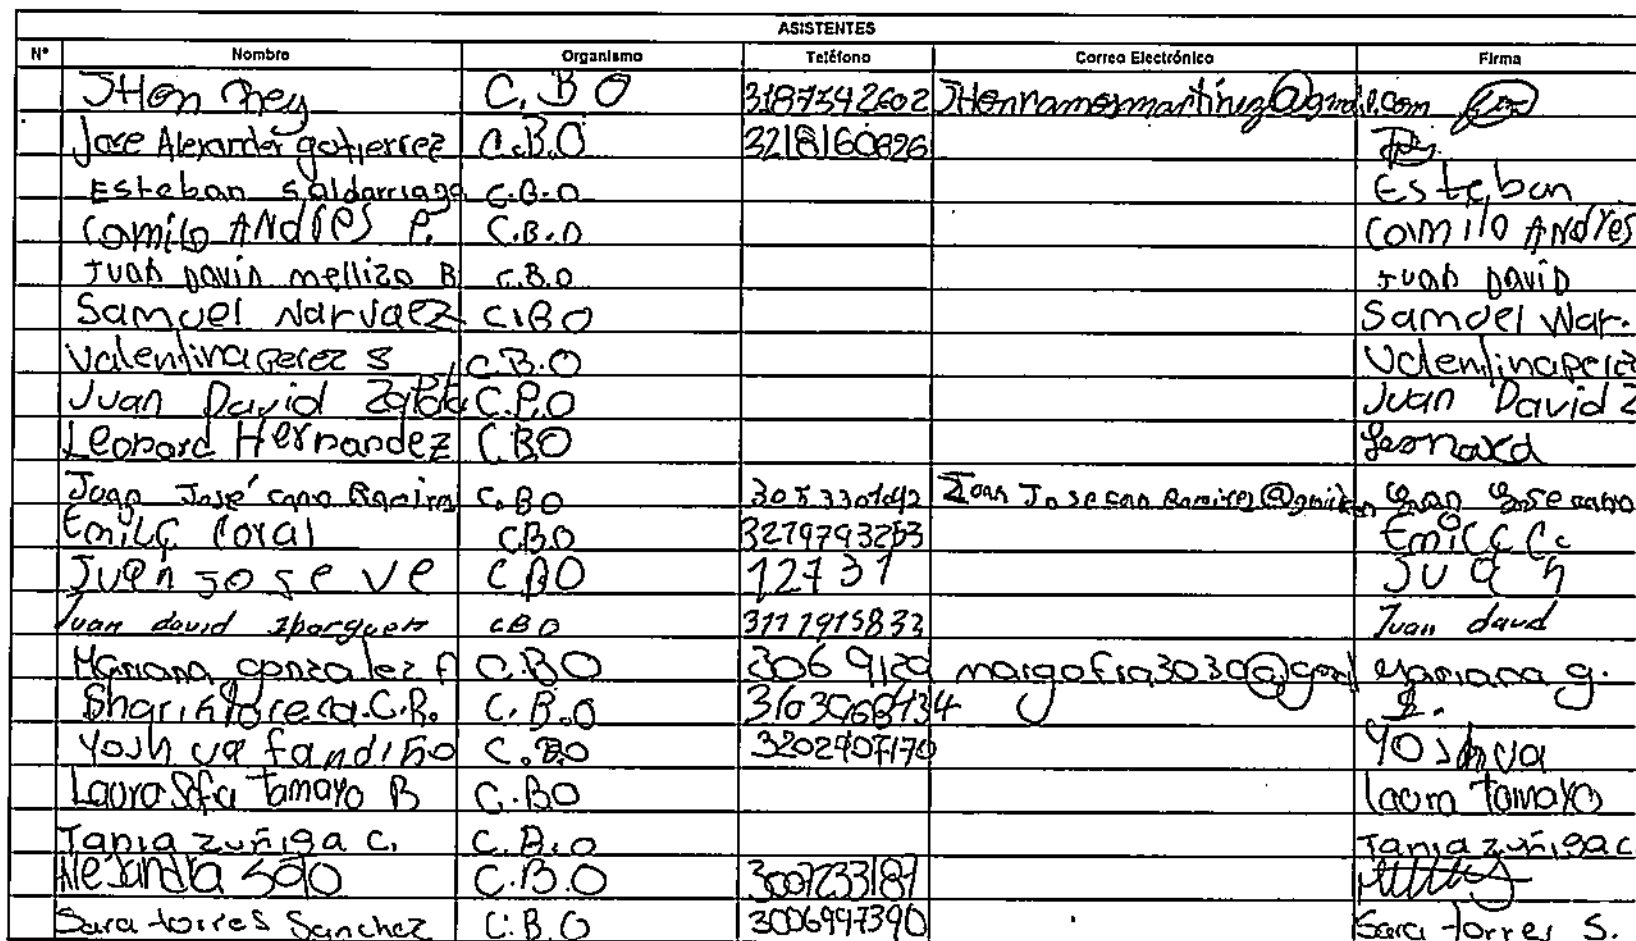 ASISTENTES
Nº Nombre Organismo Teléfono Correo Electrónico Firma
JHon Rey C.B O 3187342602 JHonramosmartinez@gmail.com
Jose Alexander gutierrez C.B.O 3218160826
Esteban saldarriaga C.B.O Esteban
Camilo ANdres P. C.B.O Camilo ANdres
JUAN DAVID mellizo B C.B.O JUAN DAVID
Samuel Narvaez C.B O Samuel Nar.
Valentina perez S C.B.O Valentina perez
Juan David Zapata C.B.O Juan David Z
Leonard Hernandez C.B.O Leonard
Juan José cano Ramirez C.BO Juan Jose cano
Emilce Coral C.B.O 3279793253 Emilce C.
Juan jose ve C.B.O 12731 Juan
Juan david Ibarguen CBO 3117915833 Juan david
Mariana gonzalez F C.B.O 306 9129 margofra3030@gmal Mariana g.
C.R. C.B.O
Yoshua fandiño C.B.O 3202907170 Yoshua
Laura Sofia Tamayo B C.BO Laura Tamayo
Tania zuñiga C. C.B.O Tania zuñiga C
Alejandra Soto C.B.O 3007233187
Sara torres Sanchez C.B.O 3006997390 Sara torres S.